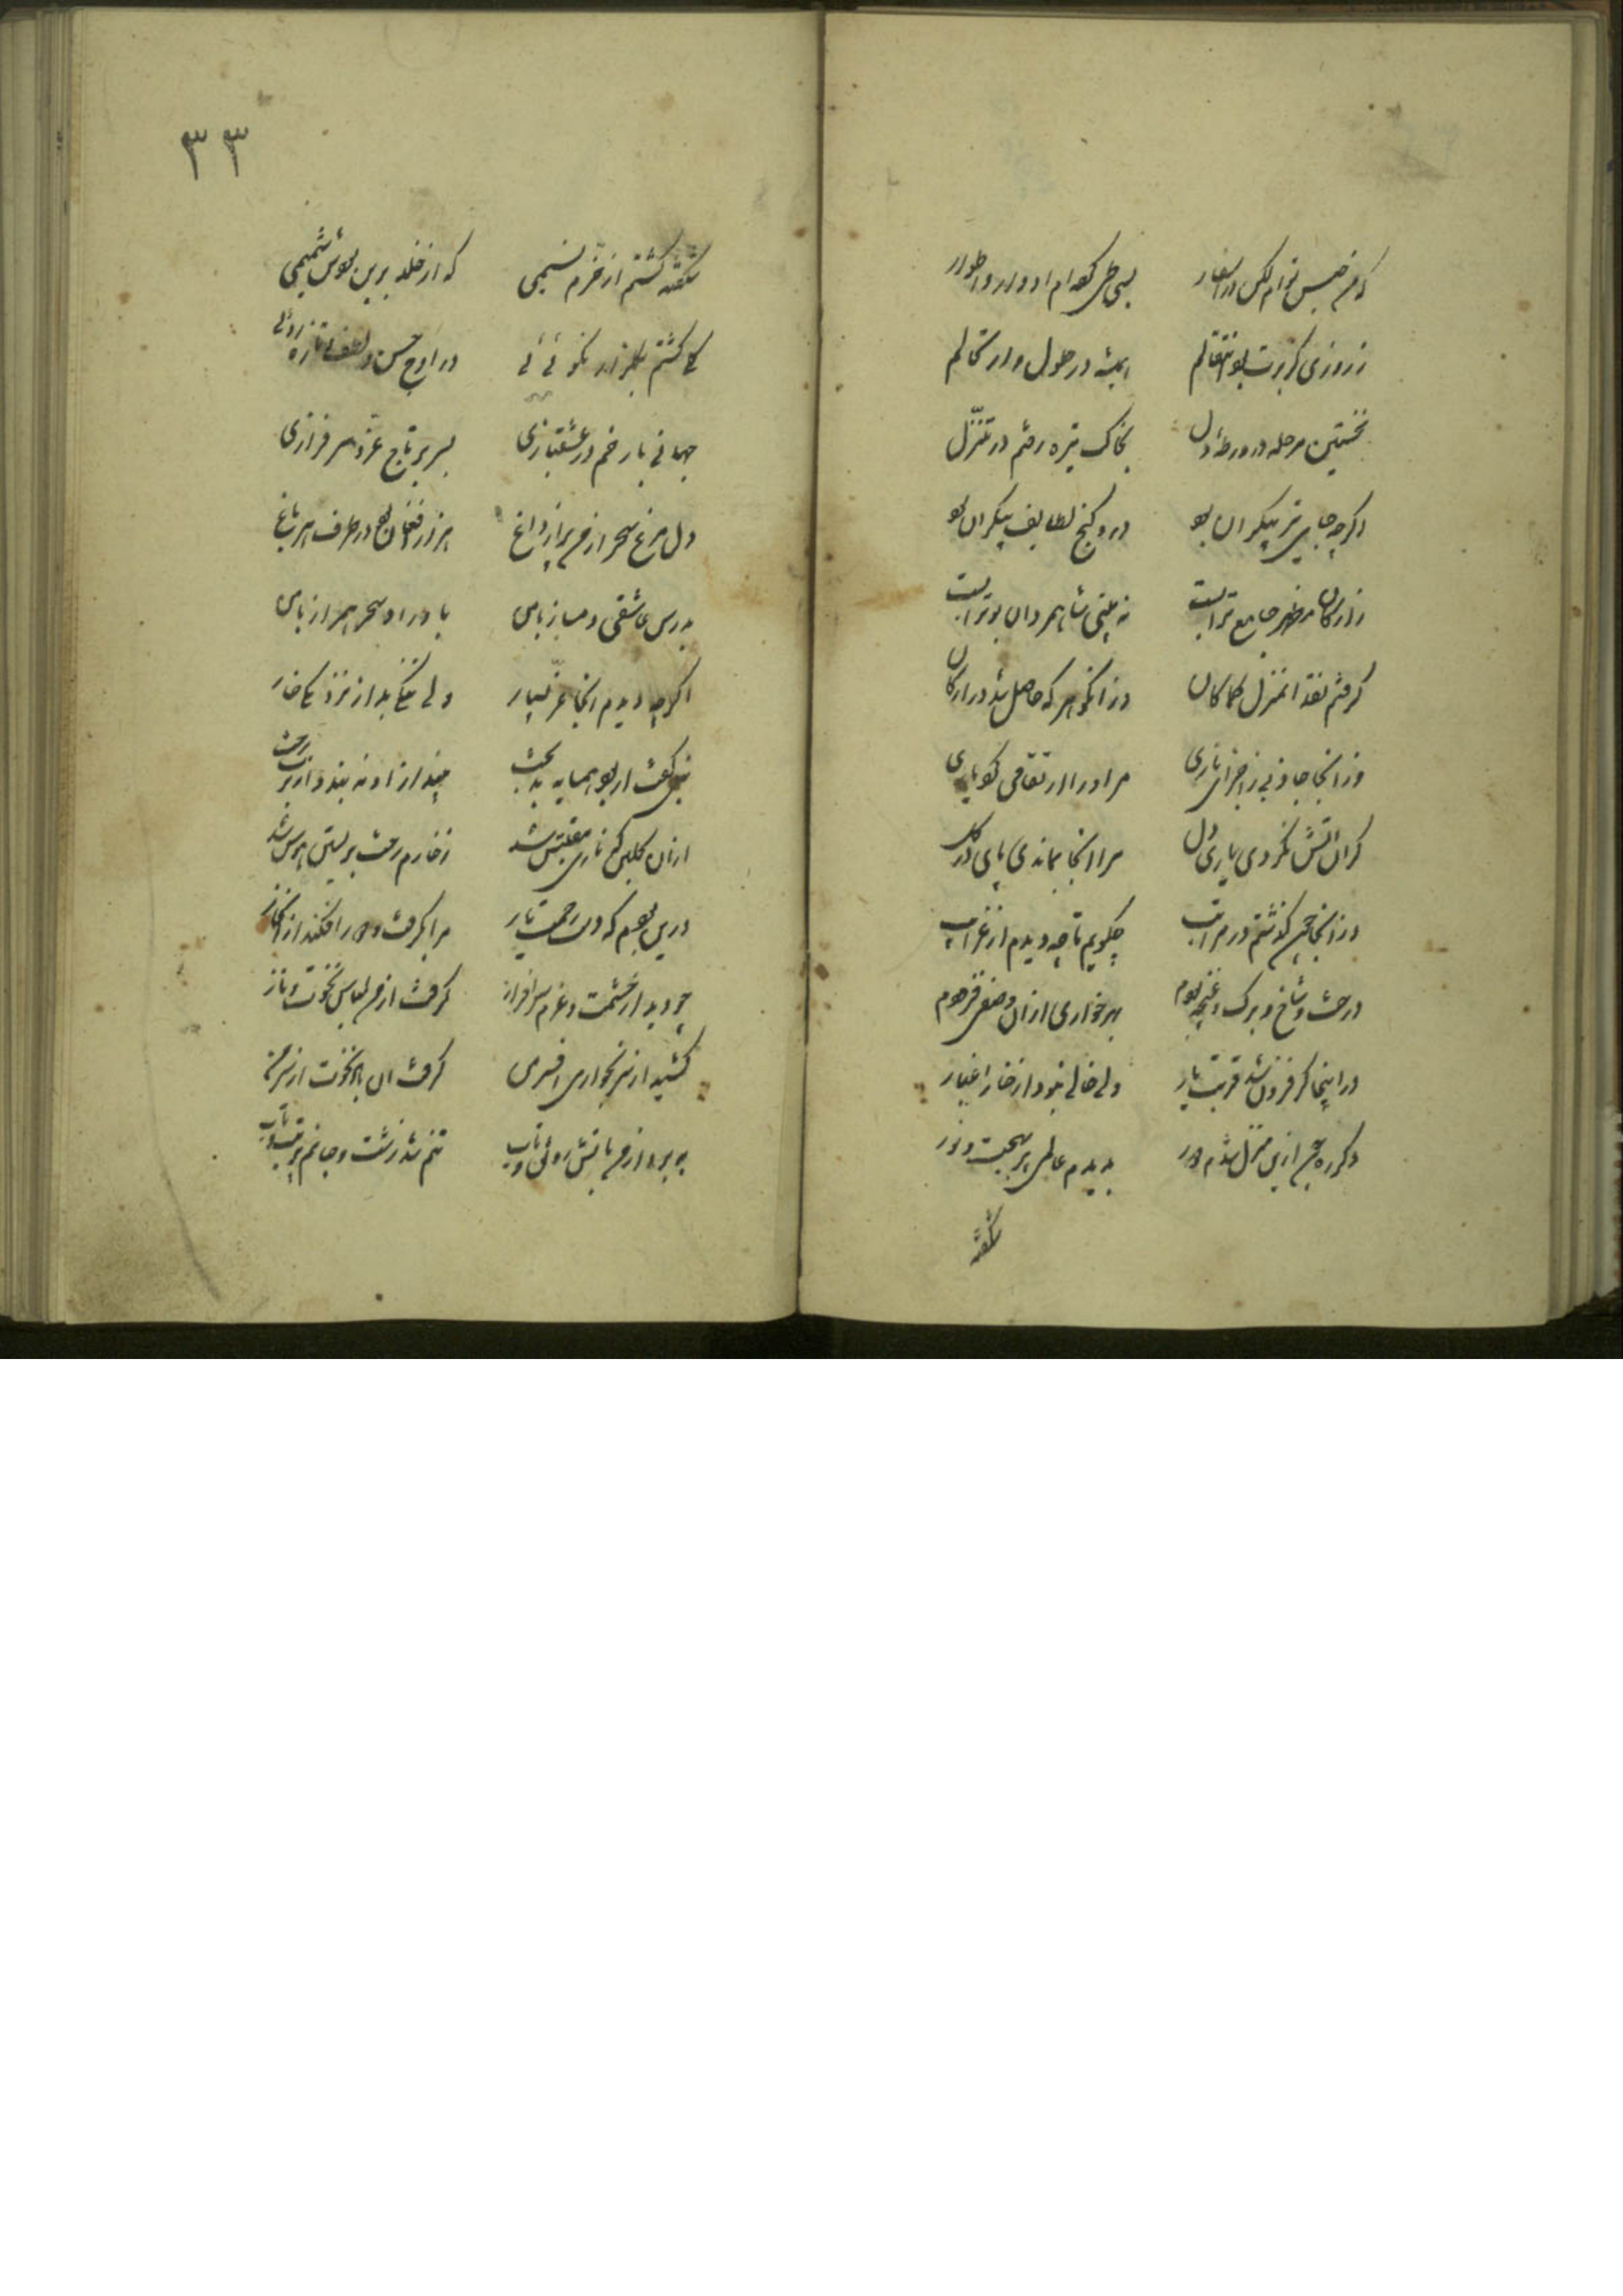 که من جنس توام لیکن در اسفار بسی طی کرده‌ام ادوار و اطوار
ز روزی کز برت بود انتقالم همیشه در حلول و ارتحالم
نخستین مرحله در ورطهٔ دل بخاک تیره رفتم در تنزل
اگر چه جای بس تر پیکران بود درو گنج لطایف بیکران بود
ز ارکان مظهر جامع ترابست نه بینی شاه مردان بوترابست
گرفتم نقد آنمنزل کماکان وز آن گوهر که حاصل شد در ارکان
وز آنجا جاذبی ز اجزای ناری مرا در ارتقا می‌کرد یاری
گر آن آتش نکردی یاری دل مرا آنجا بماندی پای در گل
وز آنجا چون گذشتم در مراتب چگویم تا چه دیدم از غرایب
درخت و شاخ و برک و غنچه بودم بهر خواری از آن وضعی فزودم
در اینجا گر فزون شد قربت یار ولی خالی نبود از خار اغیار
دگر ره چون ازین منزل شدم دور بدیدم عالمی پر بهجت و نور
شکفته
۳۳
شکفته گشتم از خرم نسیمی که از خلد برین بودش شمیمی
گلی گشتم بگلزار نکوئی در اوج حسن و لطف تازه روئی
جهانی با رخم در عشقبازی بسر بر تاج عز و سرفرازی
دل مرغ سحر از من پر از داغ هزار افغان در طرف هر باغ
بدرس عاشقی دمساز با من باوراد سحر همراز با من
اگر چه دیدم آنجا عز بسیار ولی گل باید از نزدیکی خار
نبی گفت ار بود همسایه بدبخت
ازان گلبن که ناری مقتبس شد ز خارم رخت بر بستن هوس شد
درین بودم که دست رحمت یار مرا بگرفت و دور افکند از آن خار
چو دید از حشمت و عزم سرافراز گرفت از من لباس نخوت و ناز
کشید از سر بخواری افسر من گرفت آن باد نخوت از سر من
ببرد از من بآتش رونق و تاب تنم شد زشت و جانم پر تب و تاب